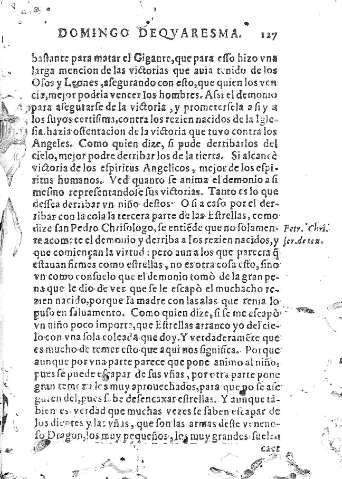 DOMINGO DEQVARESMA. 127
bastante para matar el Gigante, que para esso hizo vna
larga mencion de las victorias que auia tenido de los
Osos y Leones, asegurando con esto, que quien los ven
cia, mejor podria vencer los hombres. Assi el demonio
para asegurarse de la victoria, y prometersela a si y a
los suyos certisima, contra los rezien nacidos de la Igle-
sia, hazia ostentacion de la victoria que tuvo contra los
Angeles. Como quien dize, si pude derribarlos del
cielo, mejor podre derribar los de la tierra. Si alcancè
victoria de los espiritus Angelicos, mejor de los espi-
ritus humanos. Ved quanto se anima el demonio a si
mesmo representandose sus victorias. Tanto es lo que
dessea derribar vn niño destos. O si a caso por el der-
ribar con la cola la tercera parte de las Estrellas, como
dize san Pedro Chrisologo, se entiẽde que no solamen-
te acomete el demonio y derriba a los rezien nacidos, y
que comiençan la virtud: pero aun a los que parecia q̃
estauan firmes como estrellas, no es otra cosa esto, sino
vn como consuelo que el demonio tomò de la gran pe-
na que le dio de ver que se le escapò el muchacho re-
zien nacido, porque su madre con las alas que tenia lo
puso en saluamento. Como quien dize, si se me escapò
vn niño poco importa, que Estrellas arranco yo del cie-
lo con vna sola coleada que doy. Y verdaderamẽte que
es mucho de temer esto que aqui nos significa. Porque
aunque por vna parte parece que pone animo al niño,
pues se puede escapar de sus vñas, por otra parte pone
gran temor a los muy aprouechados, para que no se ase
guren del, pues sabe desencaxar estrellas. Y aunque tã-
bien es verdad que muchas vezes se saben escapar de
los dientes y las vñas, que son las armas deste veneno-
so Dragon, los muy pequeños, los muy grandes suelen
caer
Petr. Chri.
ser. de